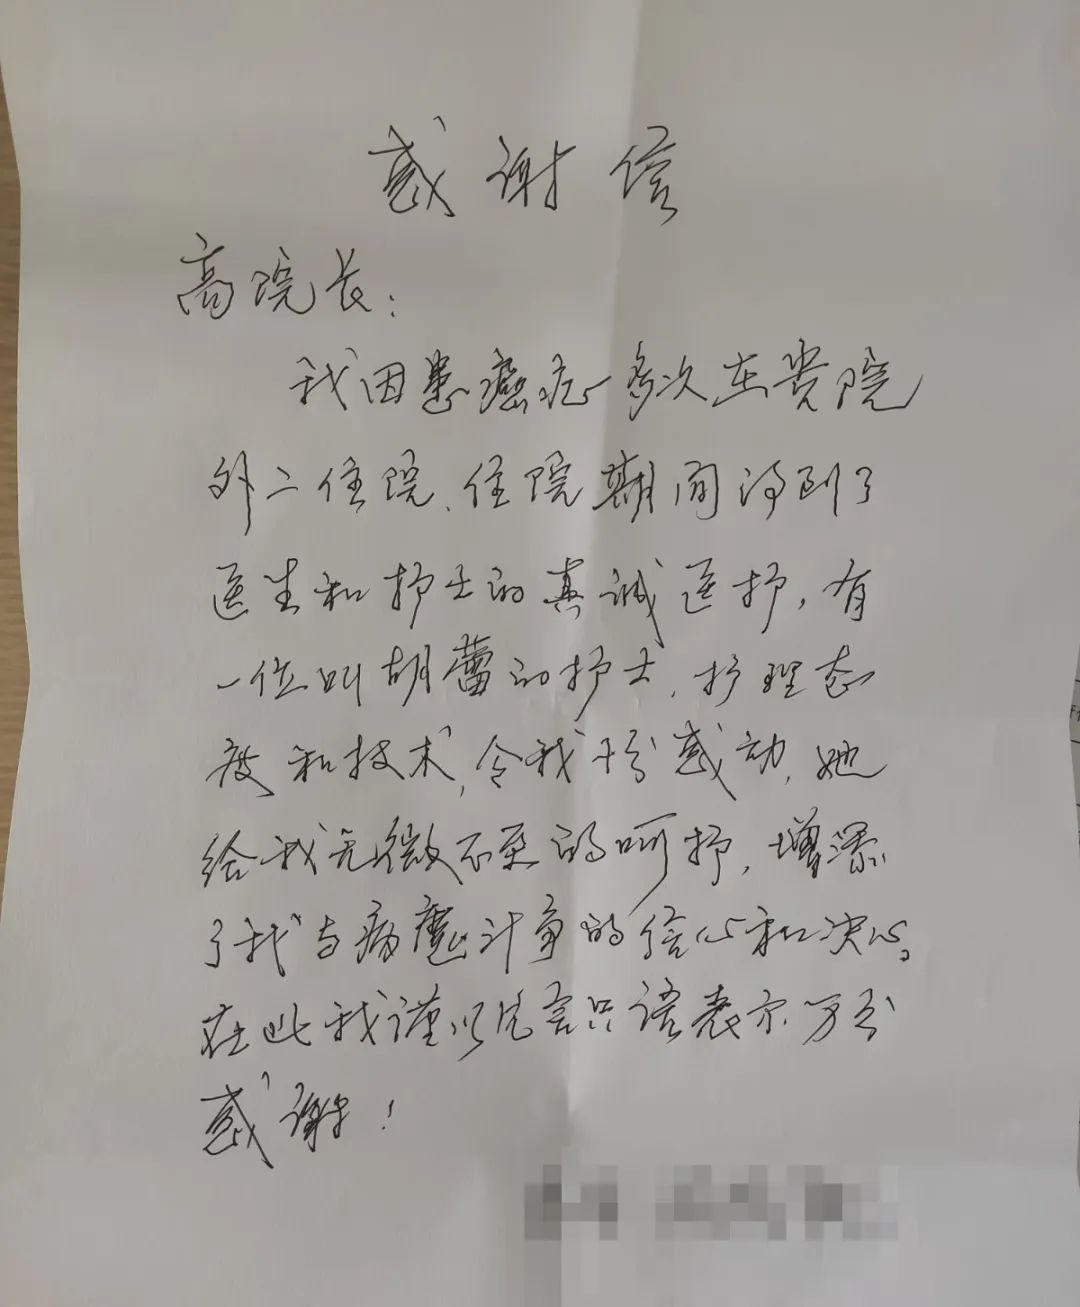 感谢信
高院长：
我因患癌症多次在贵院
外二住院、住院期间得到了
医生和护士的真诚医护，有
一位叫胡蕾的护士，护理态
度和技术，令我十分感动，她
给我无微不至的呵护，增添
了我与病魔斗争的信心和决心。
在此我谨以只言片语表示万分
感谢！